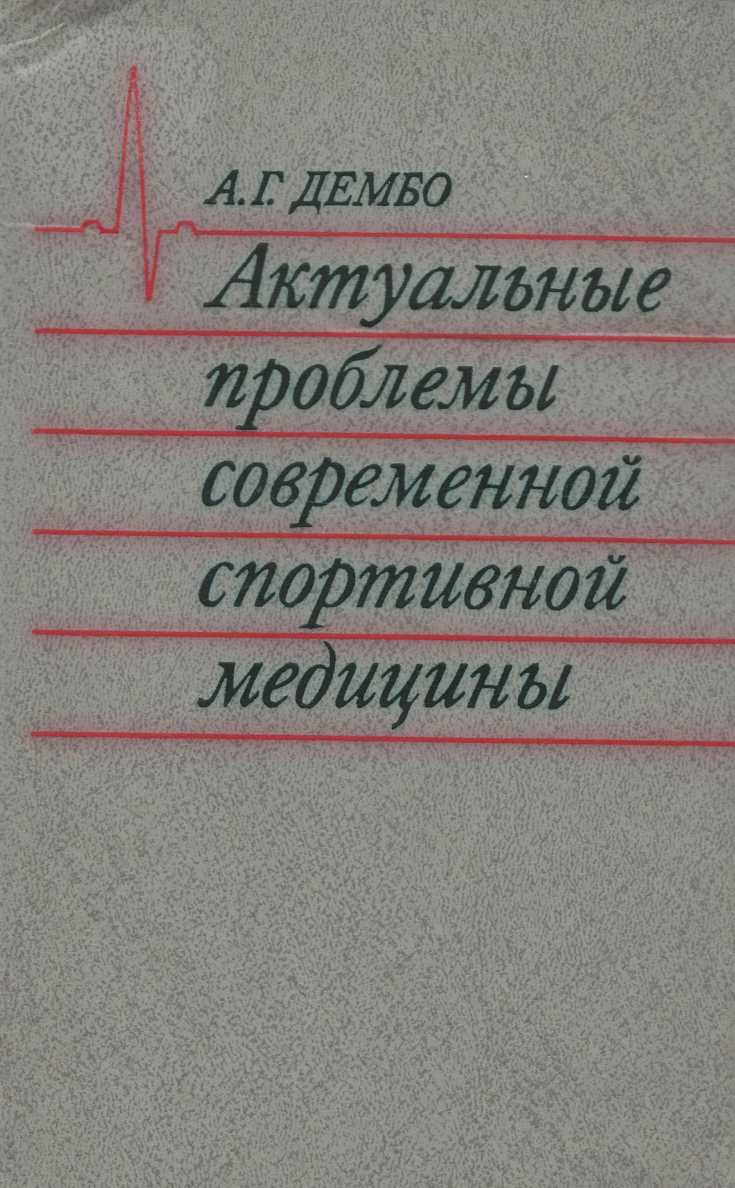 А.Г. ДЕМБО
Актуальные
проблемы
современной
спортивной
медицины